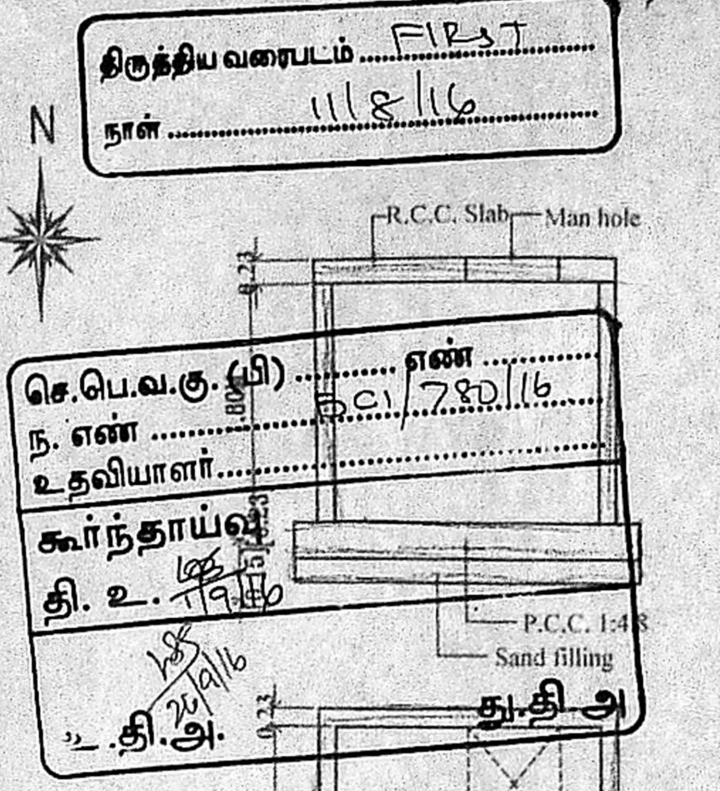 திருத்திய வரைபடம் ........ FIRST
நாள் ........ 11/8/16
N
R.C.C. Slab
Man hole
0.23
செ.பெ.வ.கு. (பி) ........ எண் ........
ந. எண் ........ /780/16
உதவியாளர் ........
0.23
கூர்ந்தாய்வு
தி. உ.
P.C.C. 1:4:8
Sand filling
20/9/16
உ.தி.அ.
து.தி அ
0.23